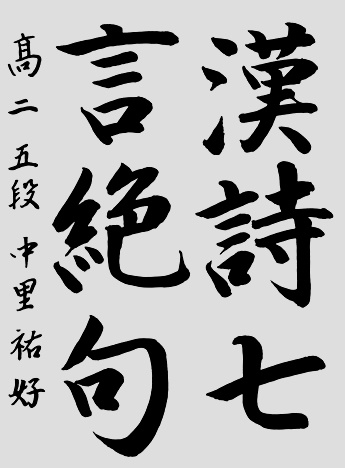 漢詩七
言絶句
高二 五段 中里祐好